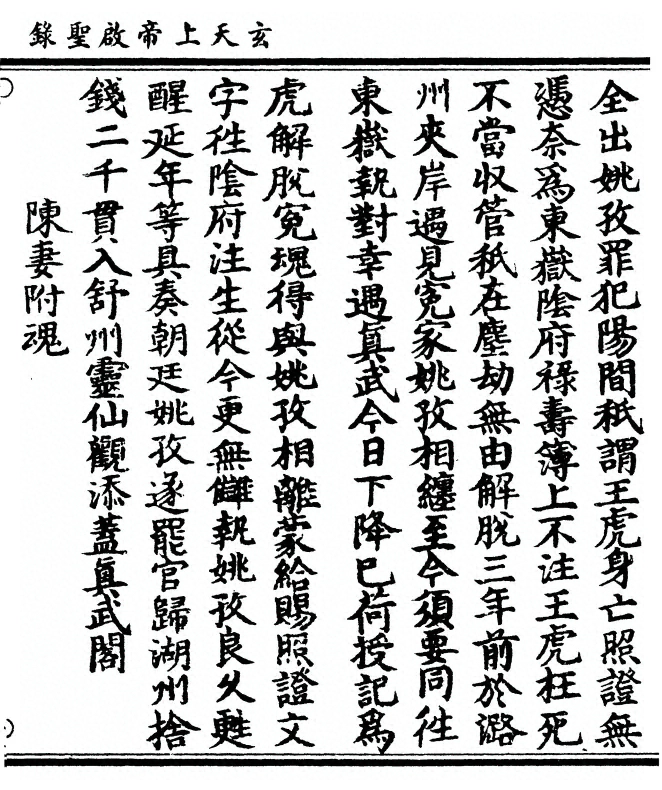 玄天上帝啟聖錄
全出姚孜罪犯陽間秖謂王虎身亡照證無
憑奈為東嶽陰府祿壽簿上不注王虎枉死
不當収管秖在塵劫無由解脫三年前於潞
州夾岸遇見冤家姚孜相纏至今須要同徃
東嶽執對幸遇真武今日下降巳荷授記為
虎解脫冤魂得與姚孜相離蒙給賜照證文
字徃陰府注生從今更無讎執姚孜良久甦
醒延年等具奏朝廷姚孜遂罷官歸湖州捨
錢二千貫入舒州靈仙觀添蓋真武閣
陳妻附魂